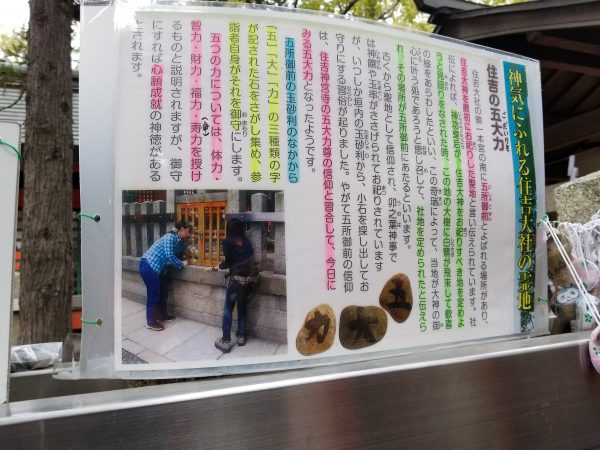 神気にふれる住吉大社の霊地
住吉の五大力
ごだいりき
住吉大社の第一本宮の南に五所御前とよばれる場所があり、
住吉大神を最初にお祀りした聖地と言い伝えられています。社
伝によれば、神功皇后が、住吉大神をお祀りすべき地を定めよ
うと見廻りをなされた時、この地の大樹に白鷺が飛来して歓喜
の様をあらわしたといい、この奇瑞によって、当地が大神の御
心に叶う処であろうと思し召して、社地を定められたと伝えら
れ、その場所が五所御前にあたるといいます。
古くから聖地として信仰され、卯之葉神事で
は神饌や玉串がささげられてお祀りされています
が、いつしか垣内の玉砂利から、小石を探し出してお
守りにする習俗が起りました。やがて五所御前の信仰
は、住吉神宮寺の五大力尊の信仰と習合して、今日に
みる五大力となったようです。
五所御前の玉砂利のなかから
「五」「大」「力」の三種類の字
が記された石をさがし集め、参
詣者自身がそれを御守にします。
おまもり
五つの力については、体力・
智力・財力・福力・寿力を授け
(命)
るものと説明されますが、御守
にすれば心願成就の神徳がある
とされます。
五
大
力